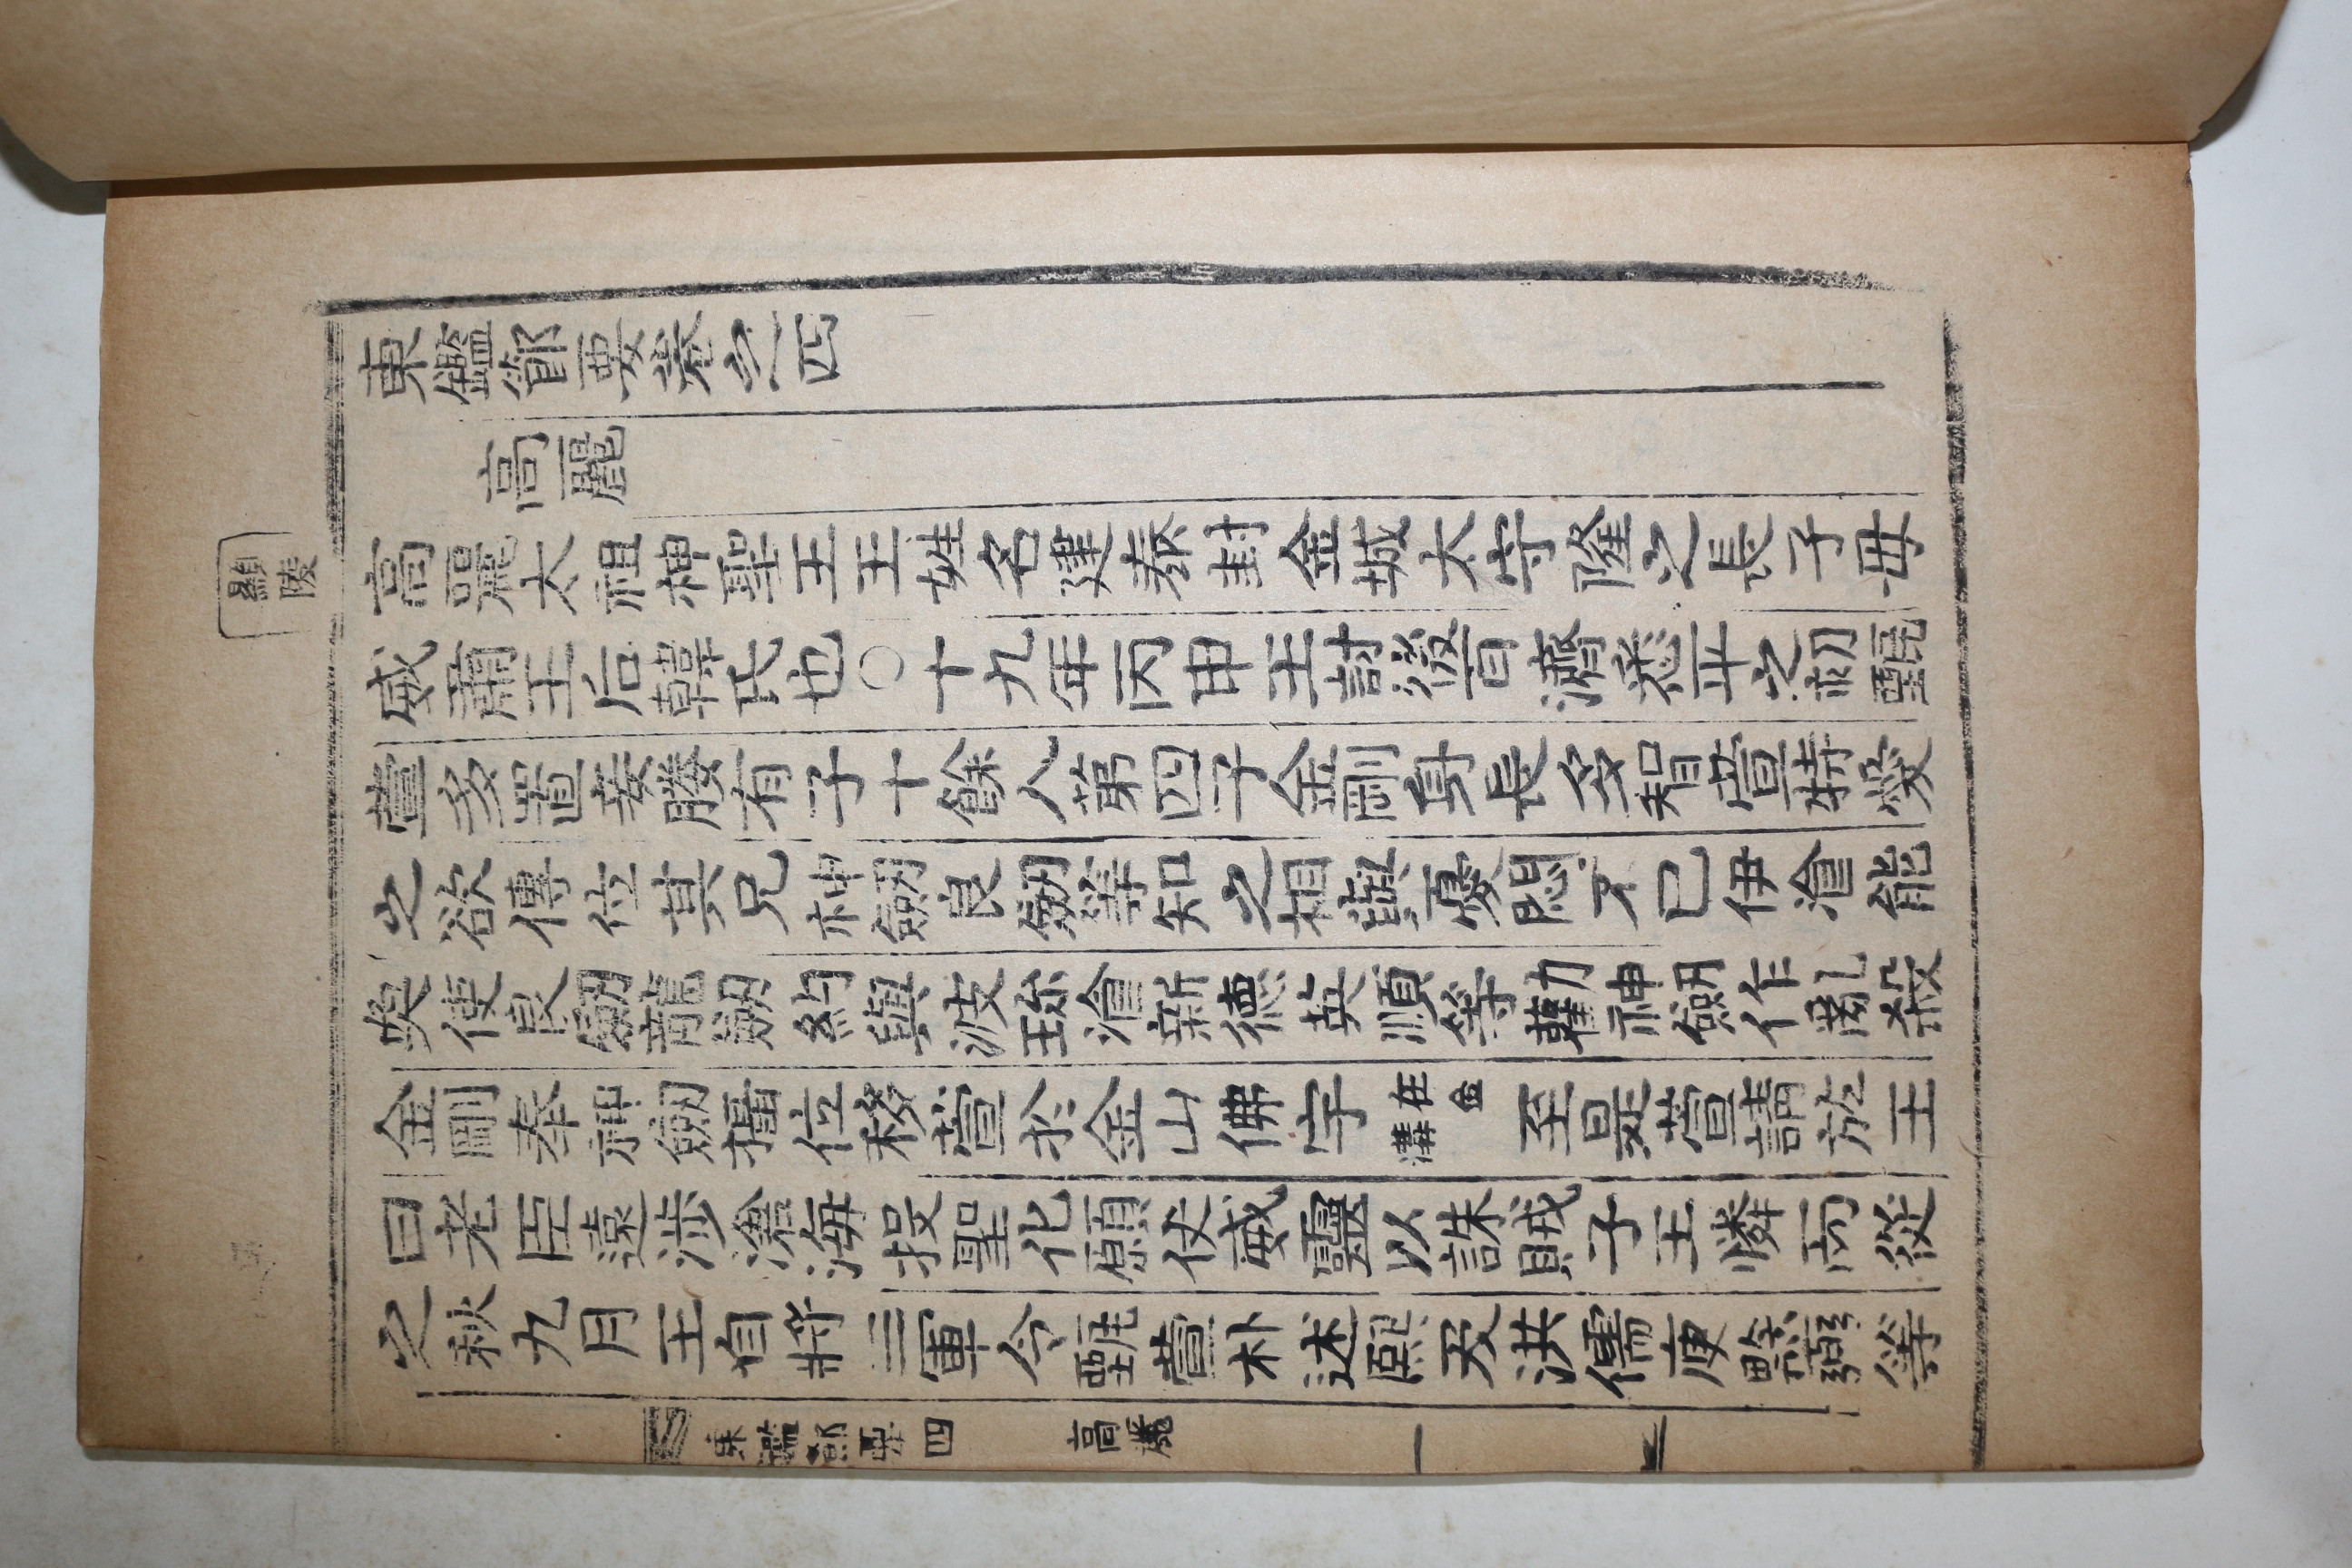 東鑑節要卷之四
高麗
顯陵
高麗太祖神聖王王姓名建泰封金城太守隆之長子母
威肅王后韓氏也○十九年丙申王討後百濟悉平之初甄
萱多置妾媵有子十餘人第四子金剛身長多智萱特愛
之欲傳位其兄神劒良劒等知之相與憂悶不已伊飡能
奐使良劒龍劒約與波珍飡新德英順等勸神劒作亂殺
金剛奉神劒攝位移萱於金山佛宇在金溝至是萱請於王
曰老臣遠涉滄海投聖化願仗威靈以誅賊子王憐而從
之秋九月王自將三軍令甄萱朴述熙及洪儒庾黔弼等
東鑑節要四 高麗 一